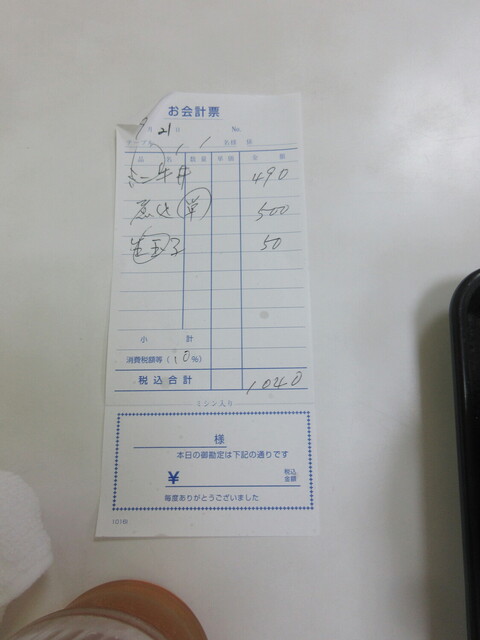 お会計票
9月21日 No.
名様 様
品名 数量 単価 金額
ミニ牛丼 490
煮込 単 500
生玉子 50
小計
消費税額等(10%)
税込合計 1040
ミシン入り
様
本日の御勘定は下記の通りです
¥ 税込金額
毎度ありがとうございました